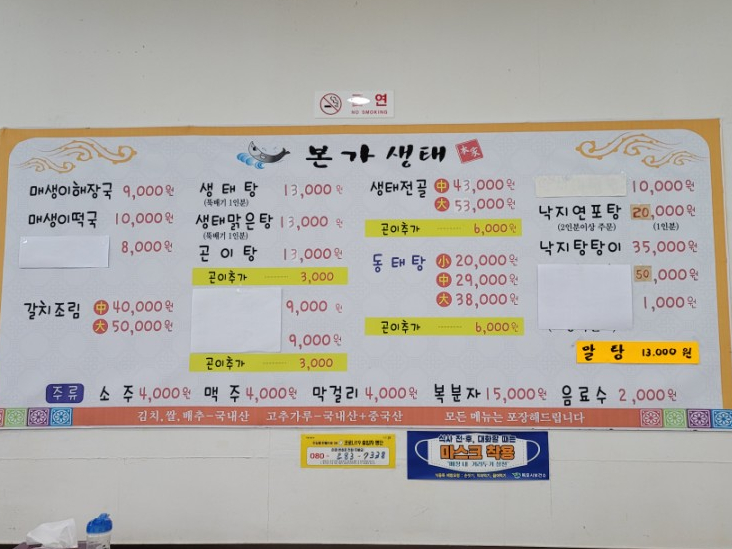 연
NO SMOKING
본가생태
本家
매생이해장국 9,000원
매생이떡국 10,000원
8,000원
갈치조림 中 40,000원
大 50,000원
생태탕 13,000원
(뚝배기 1인분)
생태맑은탕 13,000원
(뚝배기 1인분)
곤이탕 13,000원
곤이추가 ········ 3,000
9,000원
9,000원
곤이추가 ········ 3,000
생태전골 中 43,000원
大 53,000원
곤이추가 ········ 6,000원
동태탕 小 20,000원
中 29,000원
大 38,000원
곤이추가 ········ 6,000원
10,000원
낙지연포탕 20,000원
(2인분이상 주문) (1인분)
낙지탕탕이 35,000원
50,000원
1,000원
알탕 13.000원
주류 소주 4,000원 맥주 4,000원 막걸리 4,000원 복분자 15,000원 음료수 2,000원
김치,쌀,배추-국내산 고추가루-국내산+중국산 모든 메뉴는 포장해드립니다
080-283-7328
식사 전·후, 대화할 때는
마스크 착용